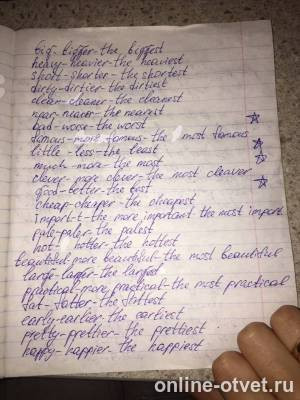 big-bigger-the biggest
heavy-heavier-the heaviest
short-shorter-the shortest
dirty-dirtier-the dirtiest
clean-cleaner-the cleanest
near-nearer-the nearest
bad-worse-the worst
famous-more famous-the most famous
little-less-the least
much-more-the most
clever-more clever-the most cleaver
good-better-the best
cheap-cheaper-the cheapest
Import-t-the more important the most import
pale-paler-the palest
hot-hotter-the hottest
beautiful-more beautiful-the most beautiful
large-larger-the largest
practical-more practical-the most practical
fat-fatter-the fattest
early-earlier-the earliest
pretty-prettier-the prettiest
happy-happier-the happiest
online-otvet.ru